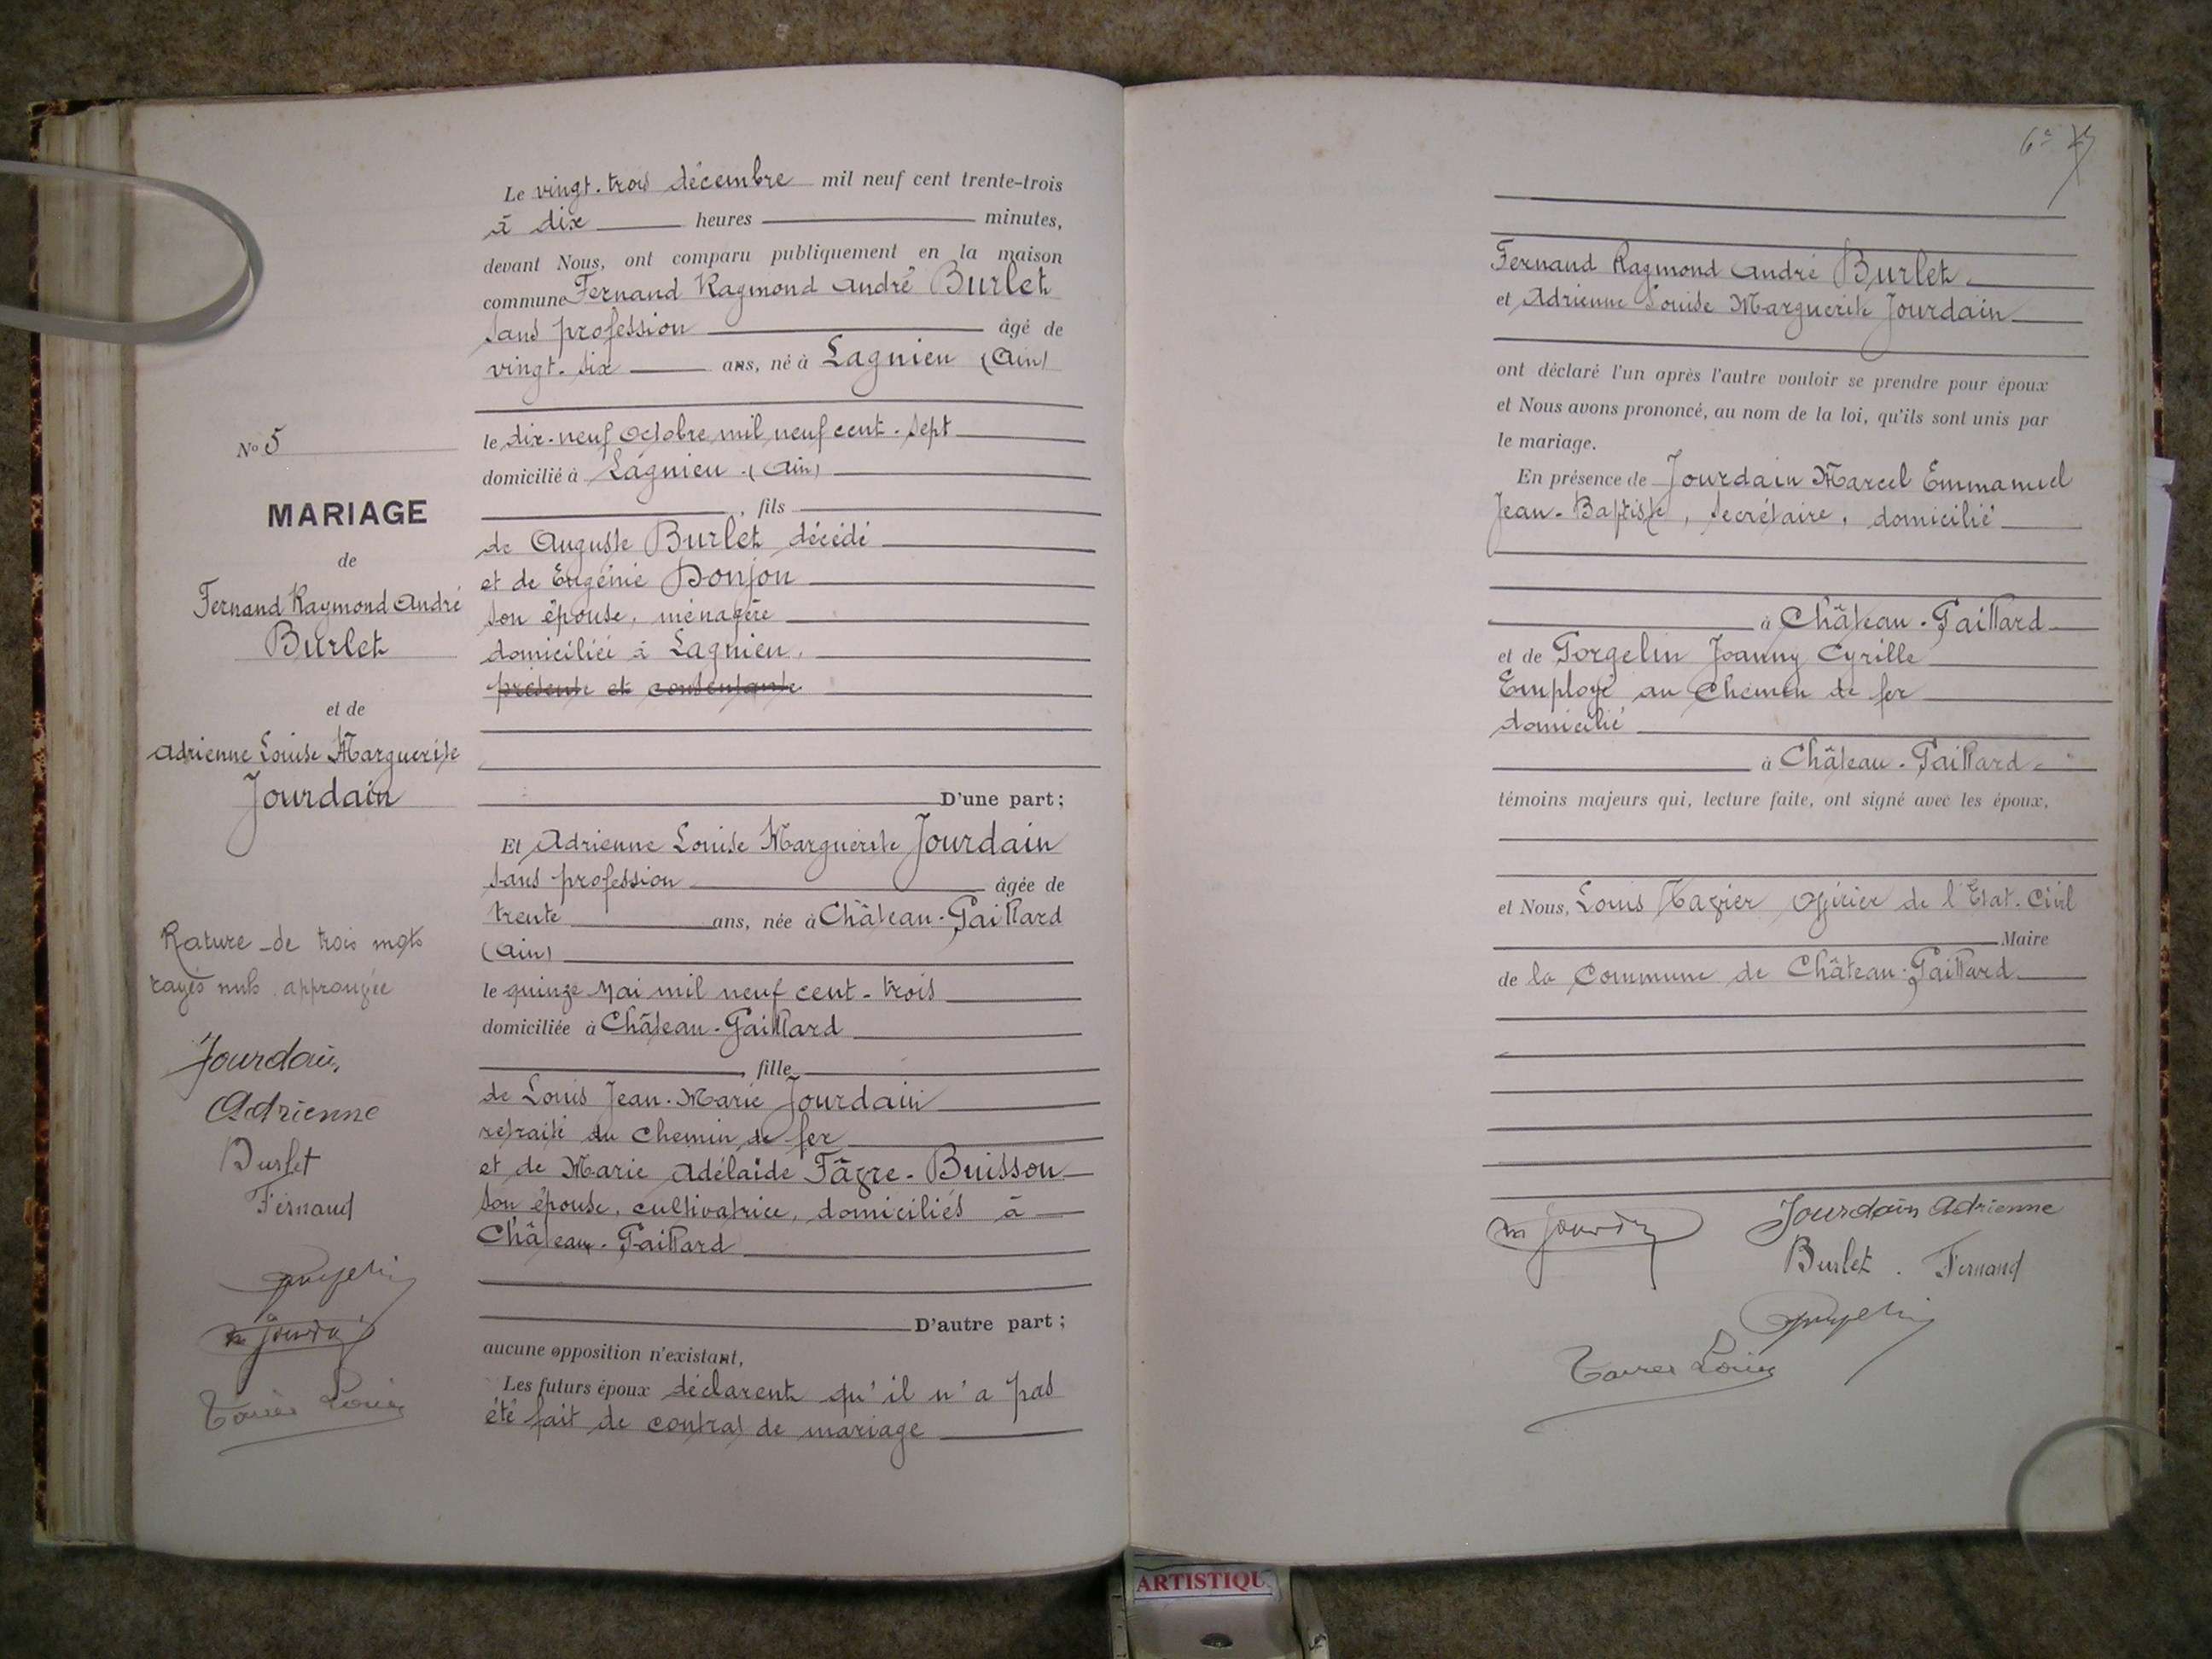 N° 5
MARIAGE
de
Fernand Raymond André
Burlet
et de
Adrienne Louise Marguerite
Jourdain
Rature de trois mots
rayés nuls approuvée
Jourdain
Adrienne
Burlet
Fernand
Le vingt-trois décembre mil neuf cent trente-trois
à dix heures minutes,
devant Nous, ont comparu publiquement en la maison
commune Fernand Raymond André Burlet
sans profession âgé de
vingt-six ans, né à Lagnieu (Ain)
le dix-neuf Octobre mil neuf cent-sept
domicilié à Lagnieu (Ain)
, fils
de Auguste Burlet décédé
et de Eugénie Donjon
son épouse, ménagère
domiciliée à Lagnieu,
présente et consentante
D'une part;
Et Adrienne Louise Marguerite Jourdain
sans profession âgée de
trente ans, née à Château-Gaillard
(Ain)
le quinze Mai mil neuf cent-trois
domiciliée à Château-Gaillard
, fille
de Louis Jean-Marie Jourdain
retraité du Chemin de fer
et de Marie Adélaïde Fâvre-Buisson
son épouse, cultivatrice, domiciliés à
Château-Gaillard
D'autre part;
aucune opposition n'existant,
Les futurs époux déclarent qu'il n'a pas
été fait de contrat de mariage
6e
Fernand Raymond André Burlet
et Adrienne Louise Marguerite Jourdain
ont déclaré l'un après l'autre vouloir se prendre pour époux
et Nous avons prononcé, au nom de la loi, qu'ils sont unis par
le mariage.
En présence de Jourdain Marcel Emmanuel
Jean-Baptiste, secrétaire, domicilié
à Château-Gaillard
et de Gorgelin Joanny Cyrille
Employé au Chemin de fer
domicilié
à Château-Gaillard
témoins majeurs qui, lecture faite, ont signé avec les époux,
et Nous, Louis Officier de l'Etat-Civil
Maire
de la Commune de Château-Gaillard
Jourdain Adrienne
Burlet. Fernand
ARTISTIQU